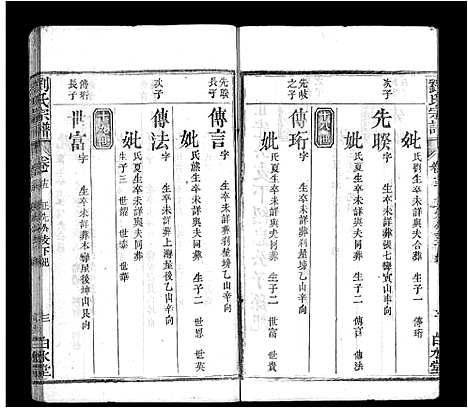 劉氏宗譜
妣
氏劉生卒未詳與夫合葬
生子一
傳珩
次子
先聨
字
生卒未詳葬張七譻寅山申向
妣
氏夏生卒未詳與夫同葬
生子二
傳言
傳法
先岐之子
傳珩
字
生卒未詳葬剎星塝乙山辛向
妣
氏夏生卒未詳與夫同葬
生子二
世富
世貴
先聨長子
傳言
字
生卒未詳葬剎星塝乙山辛向
妣
氏熊生卒未詳與夫同葬
生子二
世恩
世英
次子
傳法
字
生卒未詳葬上海星後乙山辛向
妣
氏夏生卒未詳與夫同葬
生子三
世經
世泰
世華
傳珩長子
世富
字
生卒未詳葬本壟屋後坤山艮向
劉氏宗譜
卷
三
白水堂
白水堂